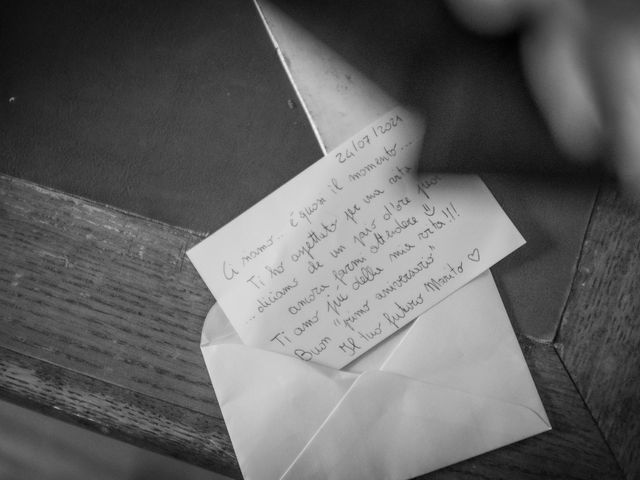 24/07/2021
Ci siamo... è quasi il momento...
Ti ho aspettato per una vita
...diciamo che un paio d'ore puoi
ancora farmi attendere ☺
Ti amo più della mia vita!!!
Buon "primo anniversario"
Il tuo futuro Marito ♡